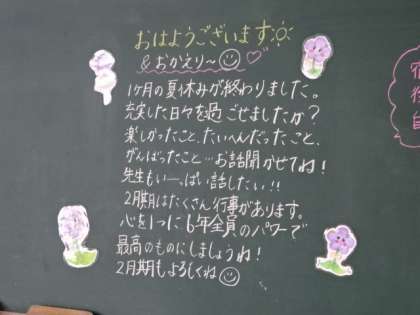 おはようございます
&おかえり〜
1ヶ月の夏休みが終わりました。
充実した日々を過ごせましたか?
楽しかったこと、たいへんだったこと、
がんばったこと…お話聞かせてね!
先生もいーっぱい話したい!!
2月期はたくさん行事があります。
心を1つに6年全員のパワーで
最高のものにしましょうね!
2月期もよろしくね